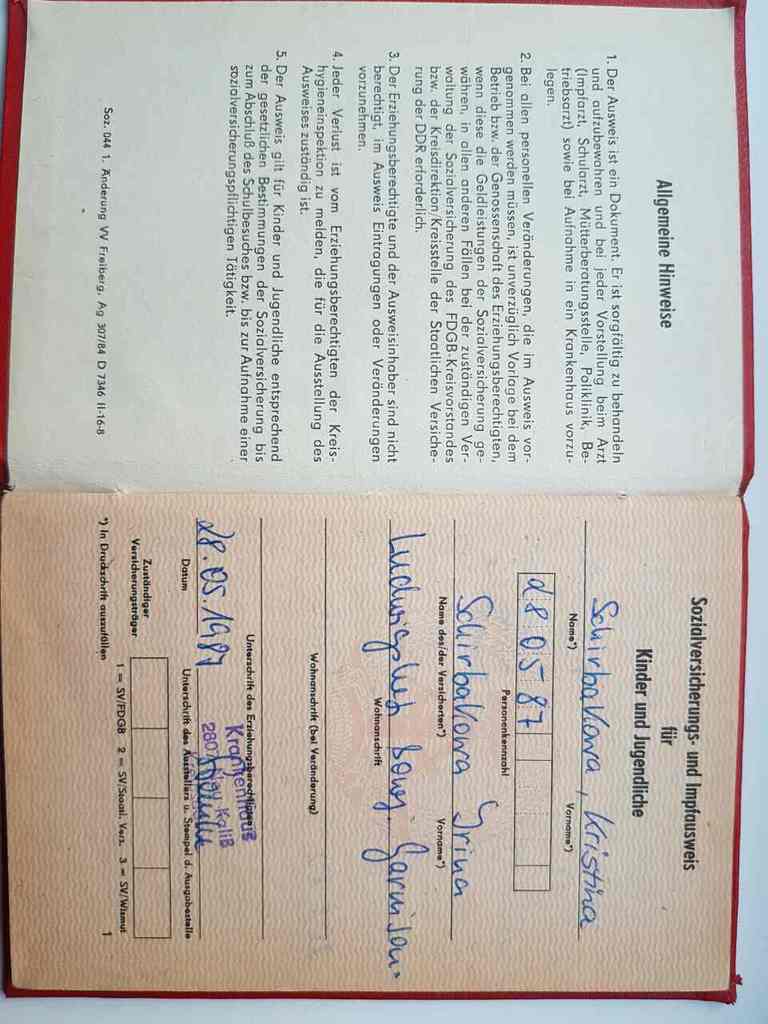 Allgemeine Hinweise
1. Der Ausweis ist ein Dokument. Er ist sorgfältig zu behandeln
und aufzubewahren und bei jeder Vorstellung beim Arzt
(Impfarzt, Schularzt, Mütterberatungsstelle, Poliklinik, Be-
triebsarzt) sowie bei Aufnahme in ein Krankenhaus vorzu-
legen.
2. Bei allen personellen Veränderungen, die im Ausweis vor-
genommen werden müssen, ist unverzüglich Vorlage bei dem
Betrieb bzw. der Genossenschaft des Erziehungsberechtigten,
wenn diese die Geldleistungen der Sozialversicherung ge-
währen, in allen anderen Fällen bei der zuständigen Ver-
waltung der Sozialversicherung des FDGB-Kreisvorstandes
bzw. der Kreisdirektion/Kreisstelle der Staatlichen Versiche-
rung der DDR erforderlich.
3. Der Erziehungsberechtigte und der Ausweisinhaber sind nicht
berechtigt, im Ausweis Eintragungen oder Veränderungen
vorzunehmen.
4. Jeder Verlust ist vom Erziehungsberechtigten der Kreis-
hygieneinspektion zu melden, die für die Ausstellung des
Ausweises zuständig ist.
5. Der Ausweis gilt für Kinder und Jugendliche entsprechend
der gesetzlichen Bestimmungen der Sozialversicherung bis
zum Abschluß des Schulbesuches bzw. bis zur Aufnahme einer
sozialversicherungspflichtigen Tätigkeit.
Soz. 044 1. Änderung VV Freiberg, Ag 307/84 D 7346 II-16-8
Sozialversicherungs- und Impfausweis
für
Kinder und Jugendliche
Schirbakowa, Kristina
Name*) Vorname*)
280587
Personenkennzahl
Schirbakowa Irina
Name des/der Versicherten*) Vorname*)
Ludwigslust sowj. Garnison
Wohnanschrift
Wohnanschrift (bei Veränderung)
Unterschrift des Erziehungsberechtigten
Krankenhaus
2807 Neu Kaliß
28.05.1987
Datum Unterschrift des Ausstellers u. Stempel d. Ausgabestelle
Zuständiger
Versicherungsträger
1 = SV/FDGB 2 = SV/Staatl. Vers. 3 = SV/Wismut
*) In Druckschrift auszufüllen 1